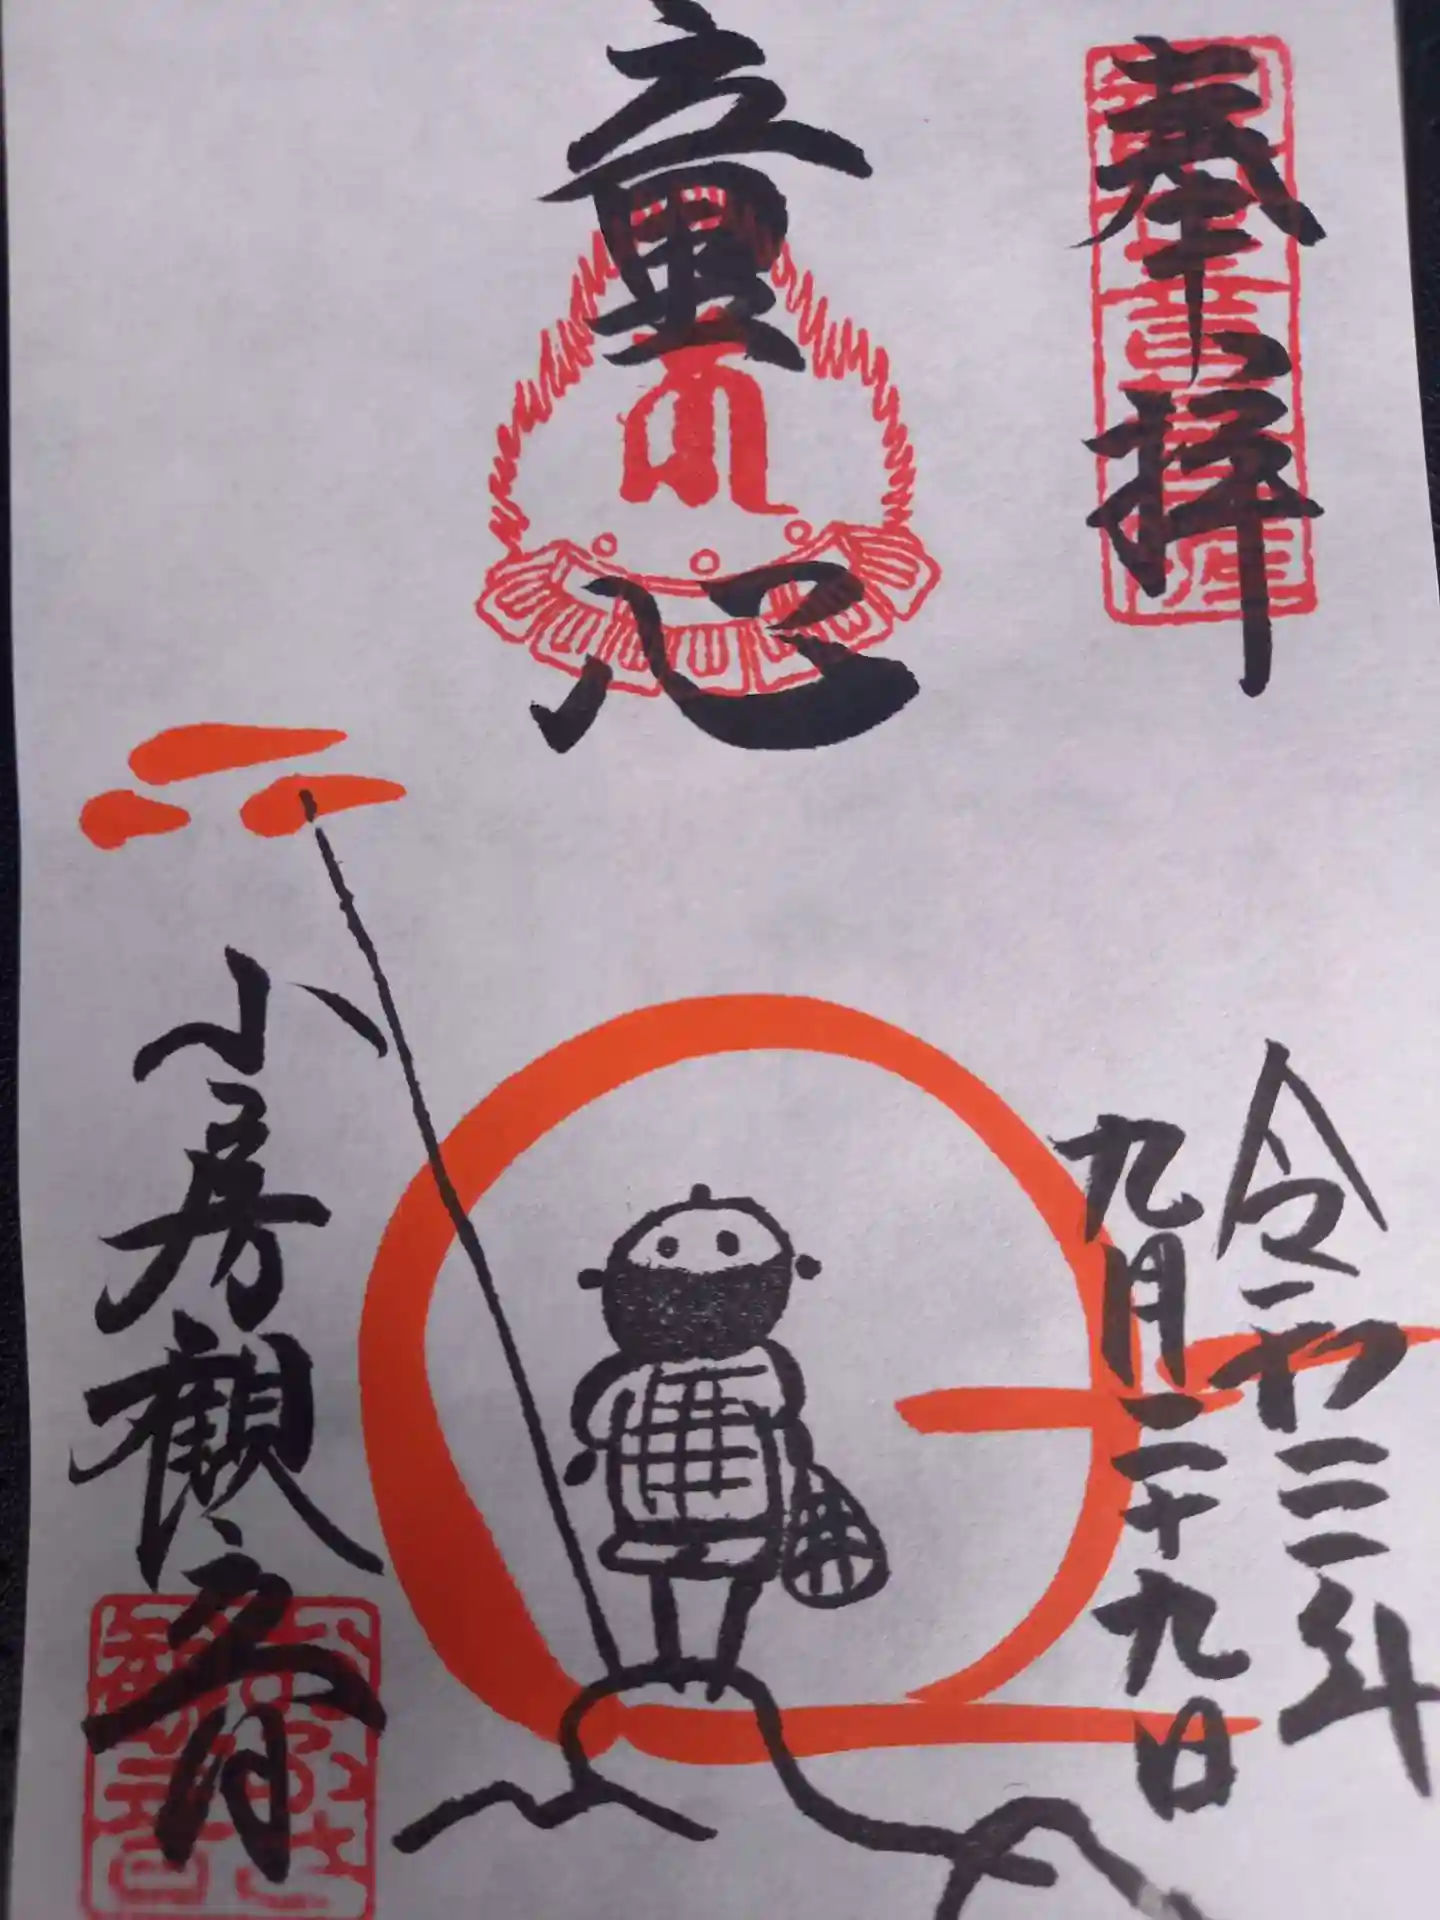 奉拝
童心
令和二年
九月二十九日
小房観音